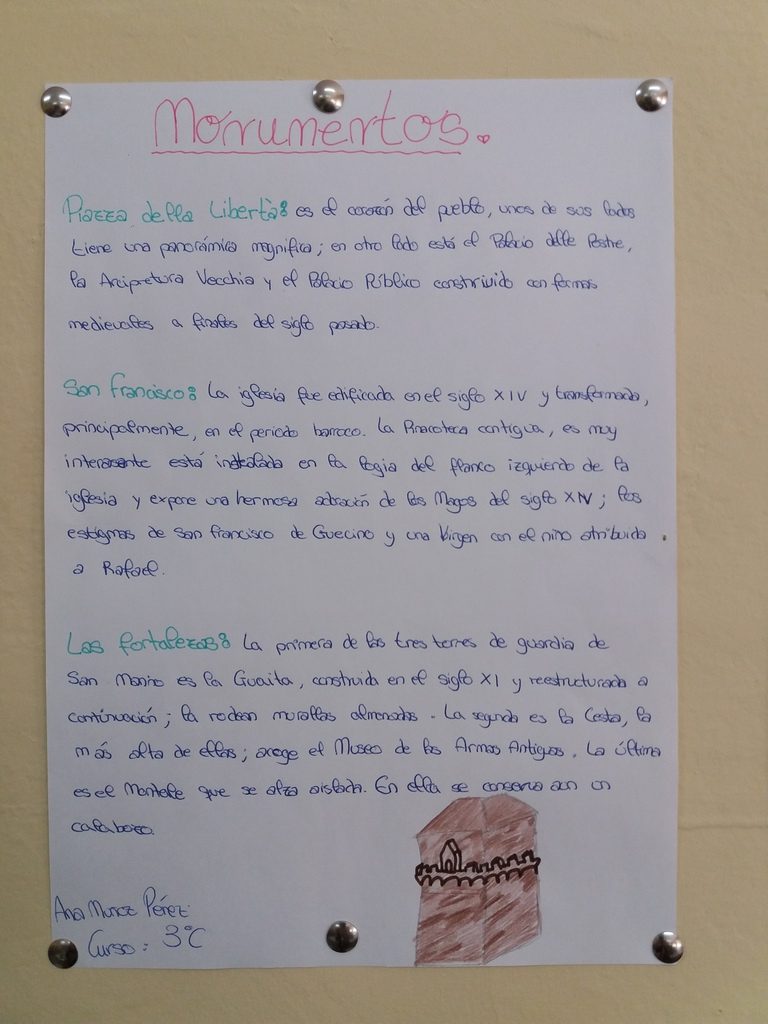 Monumentos.
Piazza della Libertà: es el corazón del pueblo, unos de sus lados
tiene una panorámica magnifica; en otro lado está el Palacio delle Postre,
la Arcipretura Vecchia y el Palacio Público construido con formas
medievales a finales del siglo pasado.
San Francisco: La iglesia fue edificada en el siglo XIV y transformada,
principalmente, en el periodo barroco. La Pinacoteca contigua, es muy
interesante está instalada en la logia del flanco izquierdo de la
iglesia y expone una hermosa adoración de los Magos del siglo XIV; los
estigmas de San Francisco de Guecino y una Virgen con el niño atribuida
a Rafael.
Las fortalezas: La primera de las tres torres de guardia de
San Marino es la Guaita, construida en el siglo XI y reestructurada a
continuación; la rodean murallas almenadas. La segunda es la Cesta, la
más alta de ellas; acoge el Museo de las Armas Antiguas. La última
es el Montale que se alza aislada. En ella se conserva aun un
calabozo.
Ana Munoz Pérez.
Curso: 3ºC